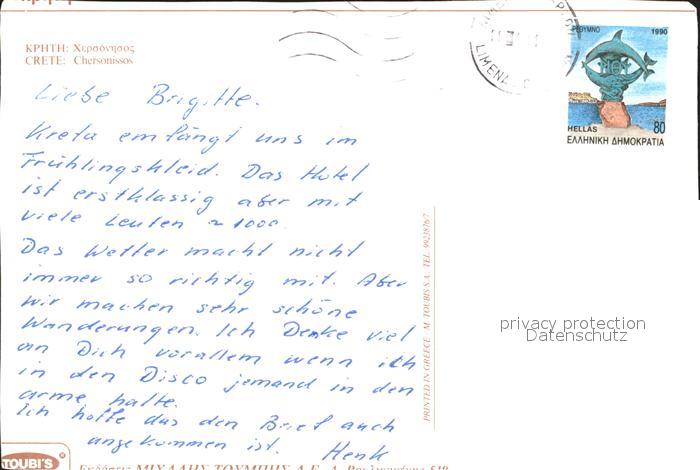 ΚΡΗΤΗ: Χερσόνησος
CRETE: Chersonissos
ΡΕΘΥΜΝΟ 1990
HELLAS 80
ΕΛΛΗΝΙΚΗ ΔΗΜΟΚΡΑΤΙΑ
LIMENA
Liebe Brigitte.
Kreta emfängt uns im
Frühlingskleid. Das Hotel
ist erstklassig aber mit
viele Leuten ~ 1000.
Das Wetter macht nicht
immer so richtig mit. Aber
wir machen sehr schöne
Wanderungen. Ich Denke viel
an Dich vorallem wenn ich
in den Disco jemand in den
arme halte.
Ich hoffe das den Brief auch
angekommen ist. Henk
PRINTED IN GREECE M. TOUBIS S.A. TEL. 9923876/7
privacy protection
Datenschutz
TOUBI'S ®
Εκδόσεις: ΜΙΧΑΛΗΣ ΤΟΥΜΠΗΣ Α.Ε. Λ. Βουλιαγμένης 519